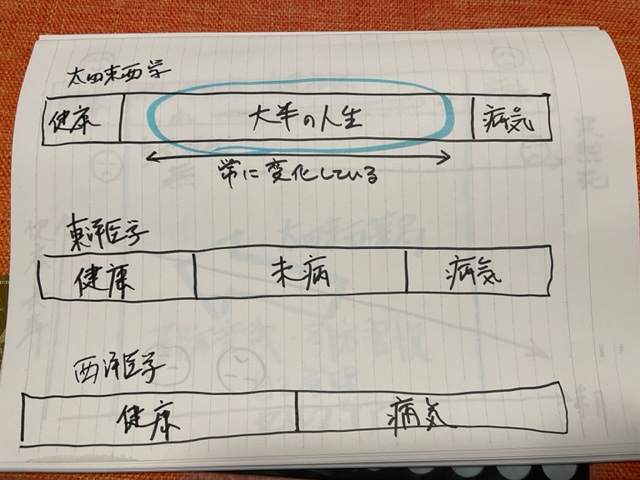 太田東西学
健康 大半の人生 病気
常に変化している
東洋医学
健康 未病 病気
西洋医学
健康 病気